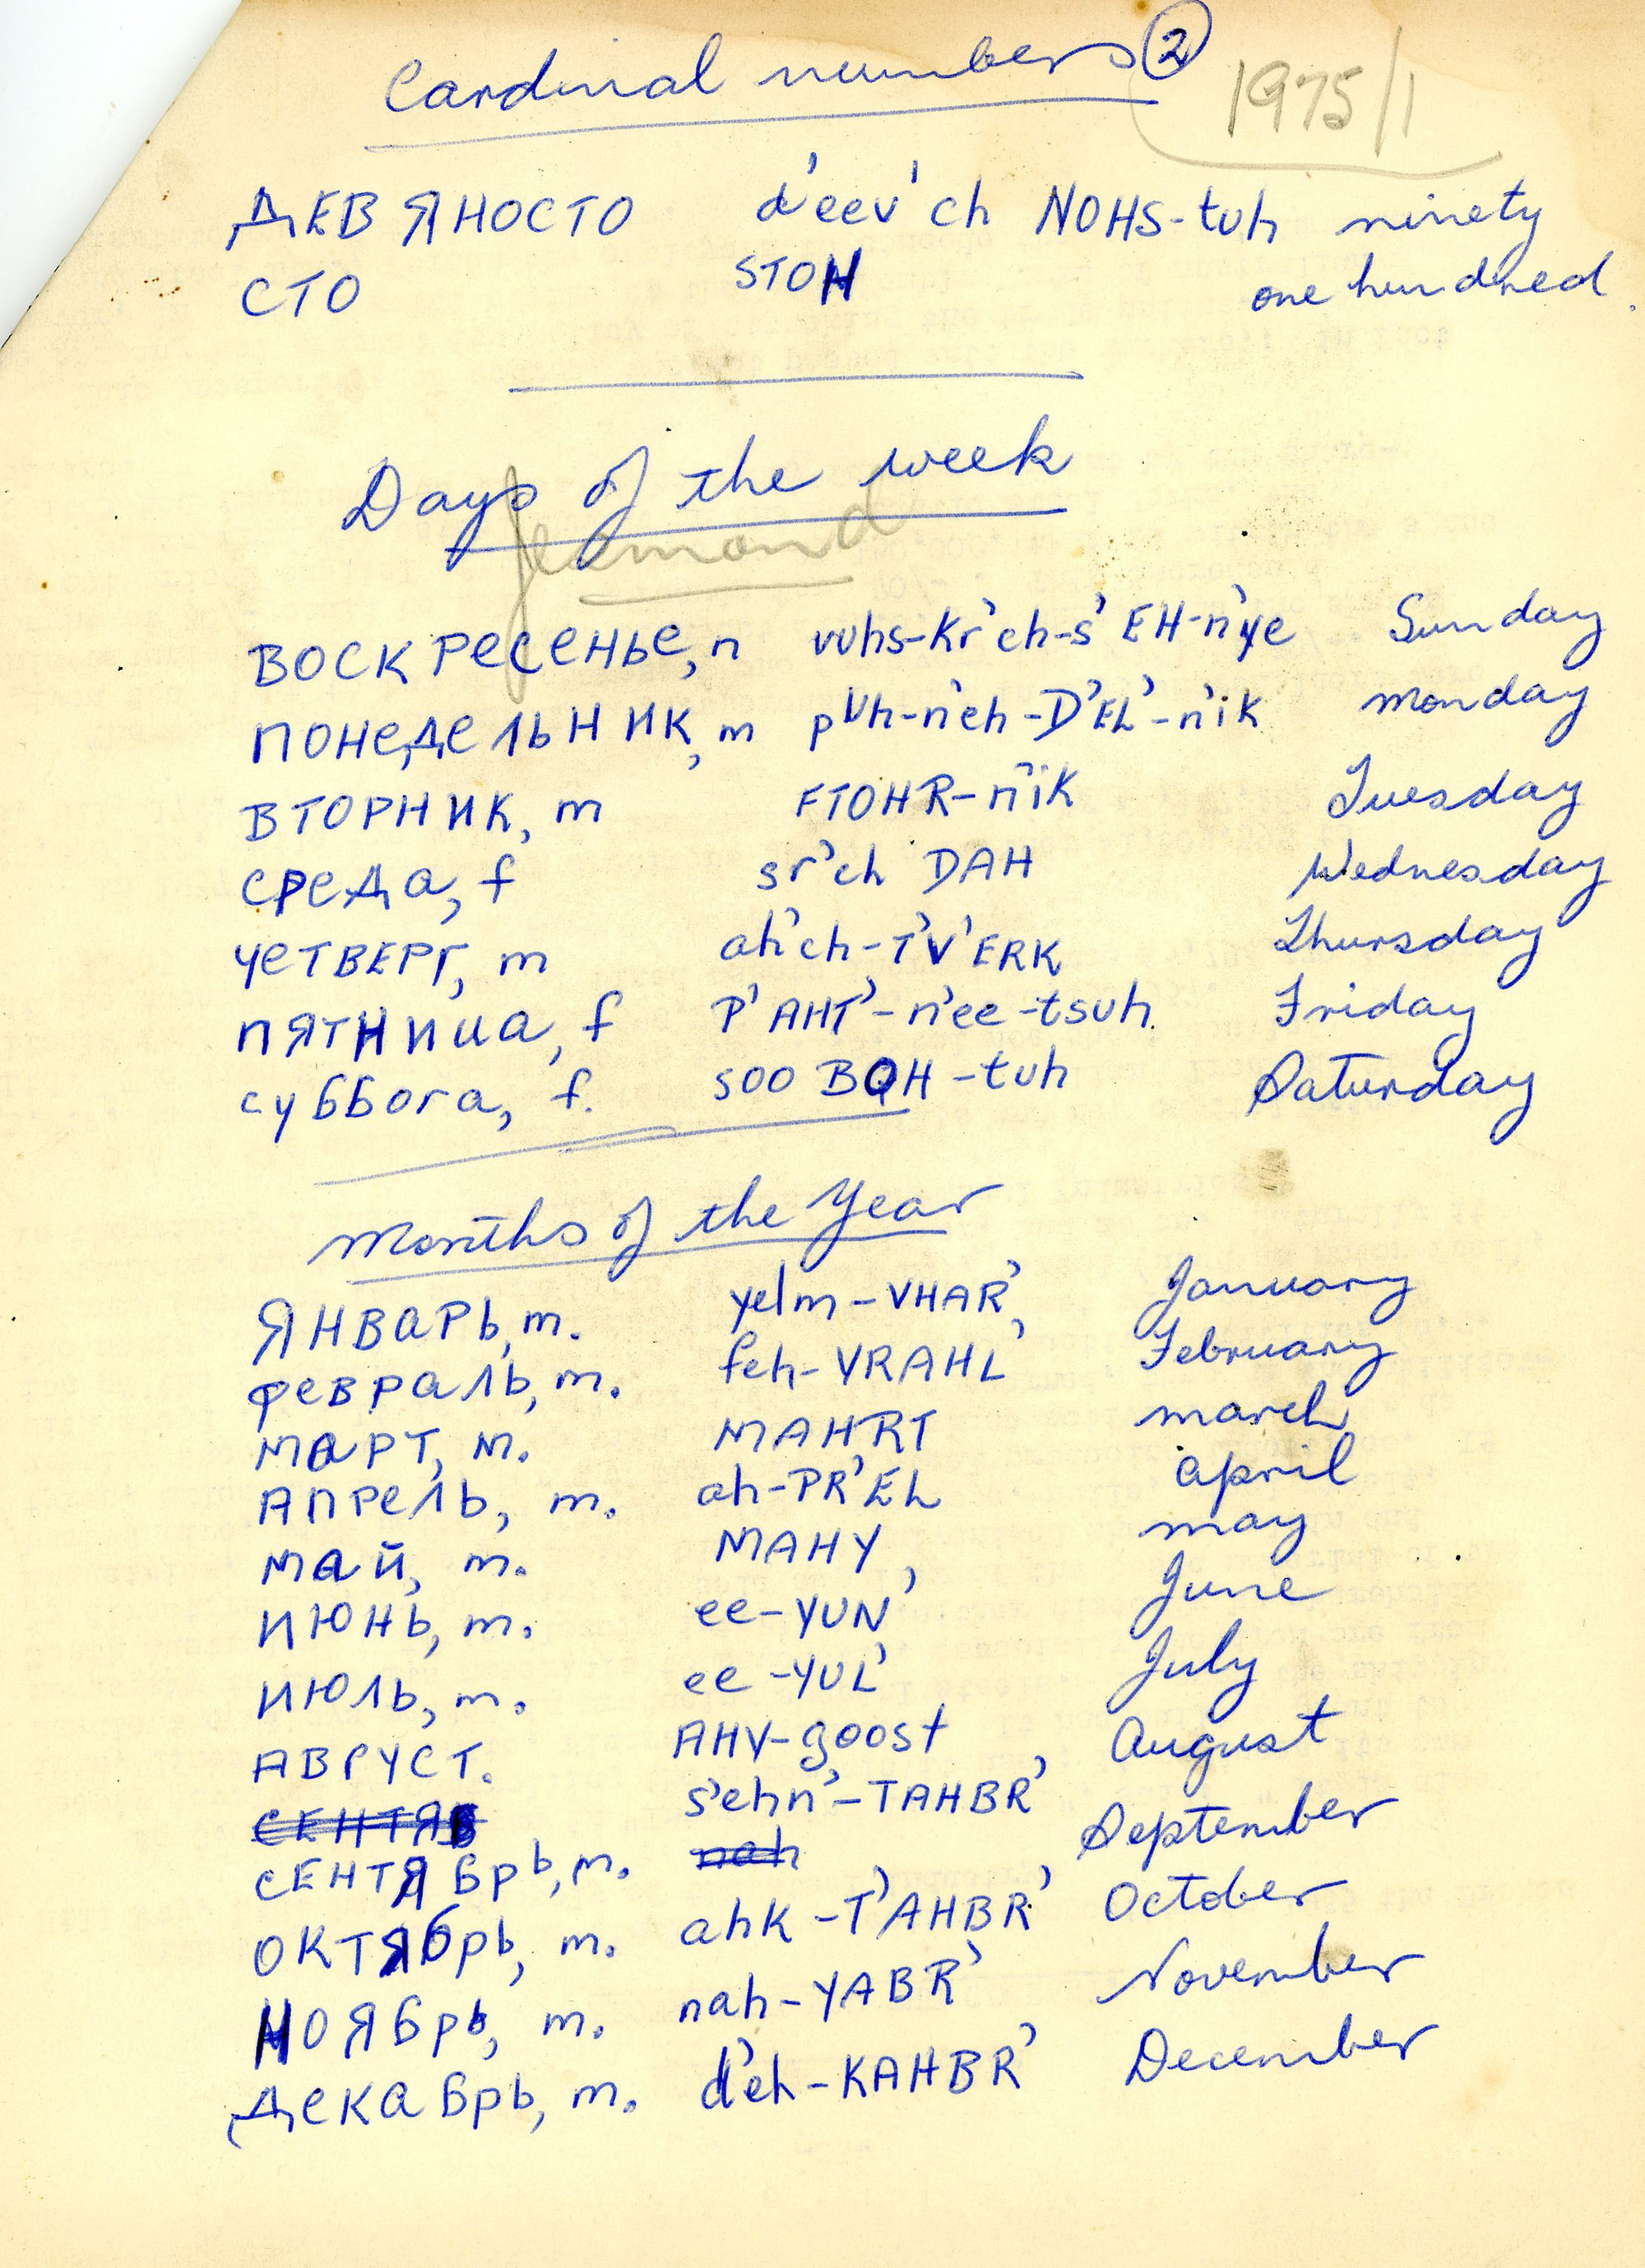 Cardinal numbers 2
1975/1
ДЕВЯНОСТО d'eev'ch NOHS-tuh ninety
СТО STOH one hundred
Days of the week
Jesmond
ВОСКРеСеНЬе, n vuhs-Kr'eh-s'EH-n'ye Sunday
ПОНеДеЛЬНИК, m puh-n'eh-D'EL'-n'iK monday
ВТОРНИК, m FTOHR-n'iK Tuesday
СРеДа, f sr'eh DAH Wednesday
ЧеТВЕРГ, m ah'ch-T'V'ERK Thursday
ПЯТНИЦа, f P'AHT'-n'ee-tsuh Friday
суббота, f. soo BOH-tuh Saturday
Months of the Year
ЯНВаРЬ, m. yelm-VHAR' January
феВРаЛЬ, m. feh-VRAHL' February
МаРТ, м. MAHRT march
АПРеЛЬ, m. ah-PR'EL april
май, m. MAHY may
ИЮНЬ, m. ee-YUN' June
ИЮЛЬ, m. ee-YUL' July
АВГУСТ. AHV-goost August
СЕНТЯБ s'ehn'-TAHBR'
СЕНТЯбрь, m. nah September
ОКТЯбрь, m. ahk-T'AHBR' October
НОЯбрь, m. nah-YABR' November
ДеКабрь, m. d'eh-KAHBR' December